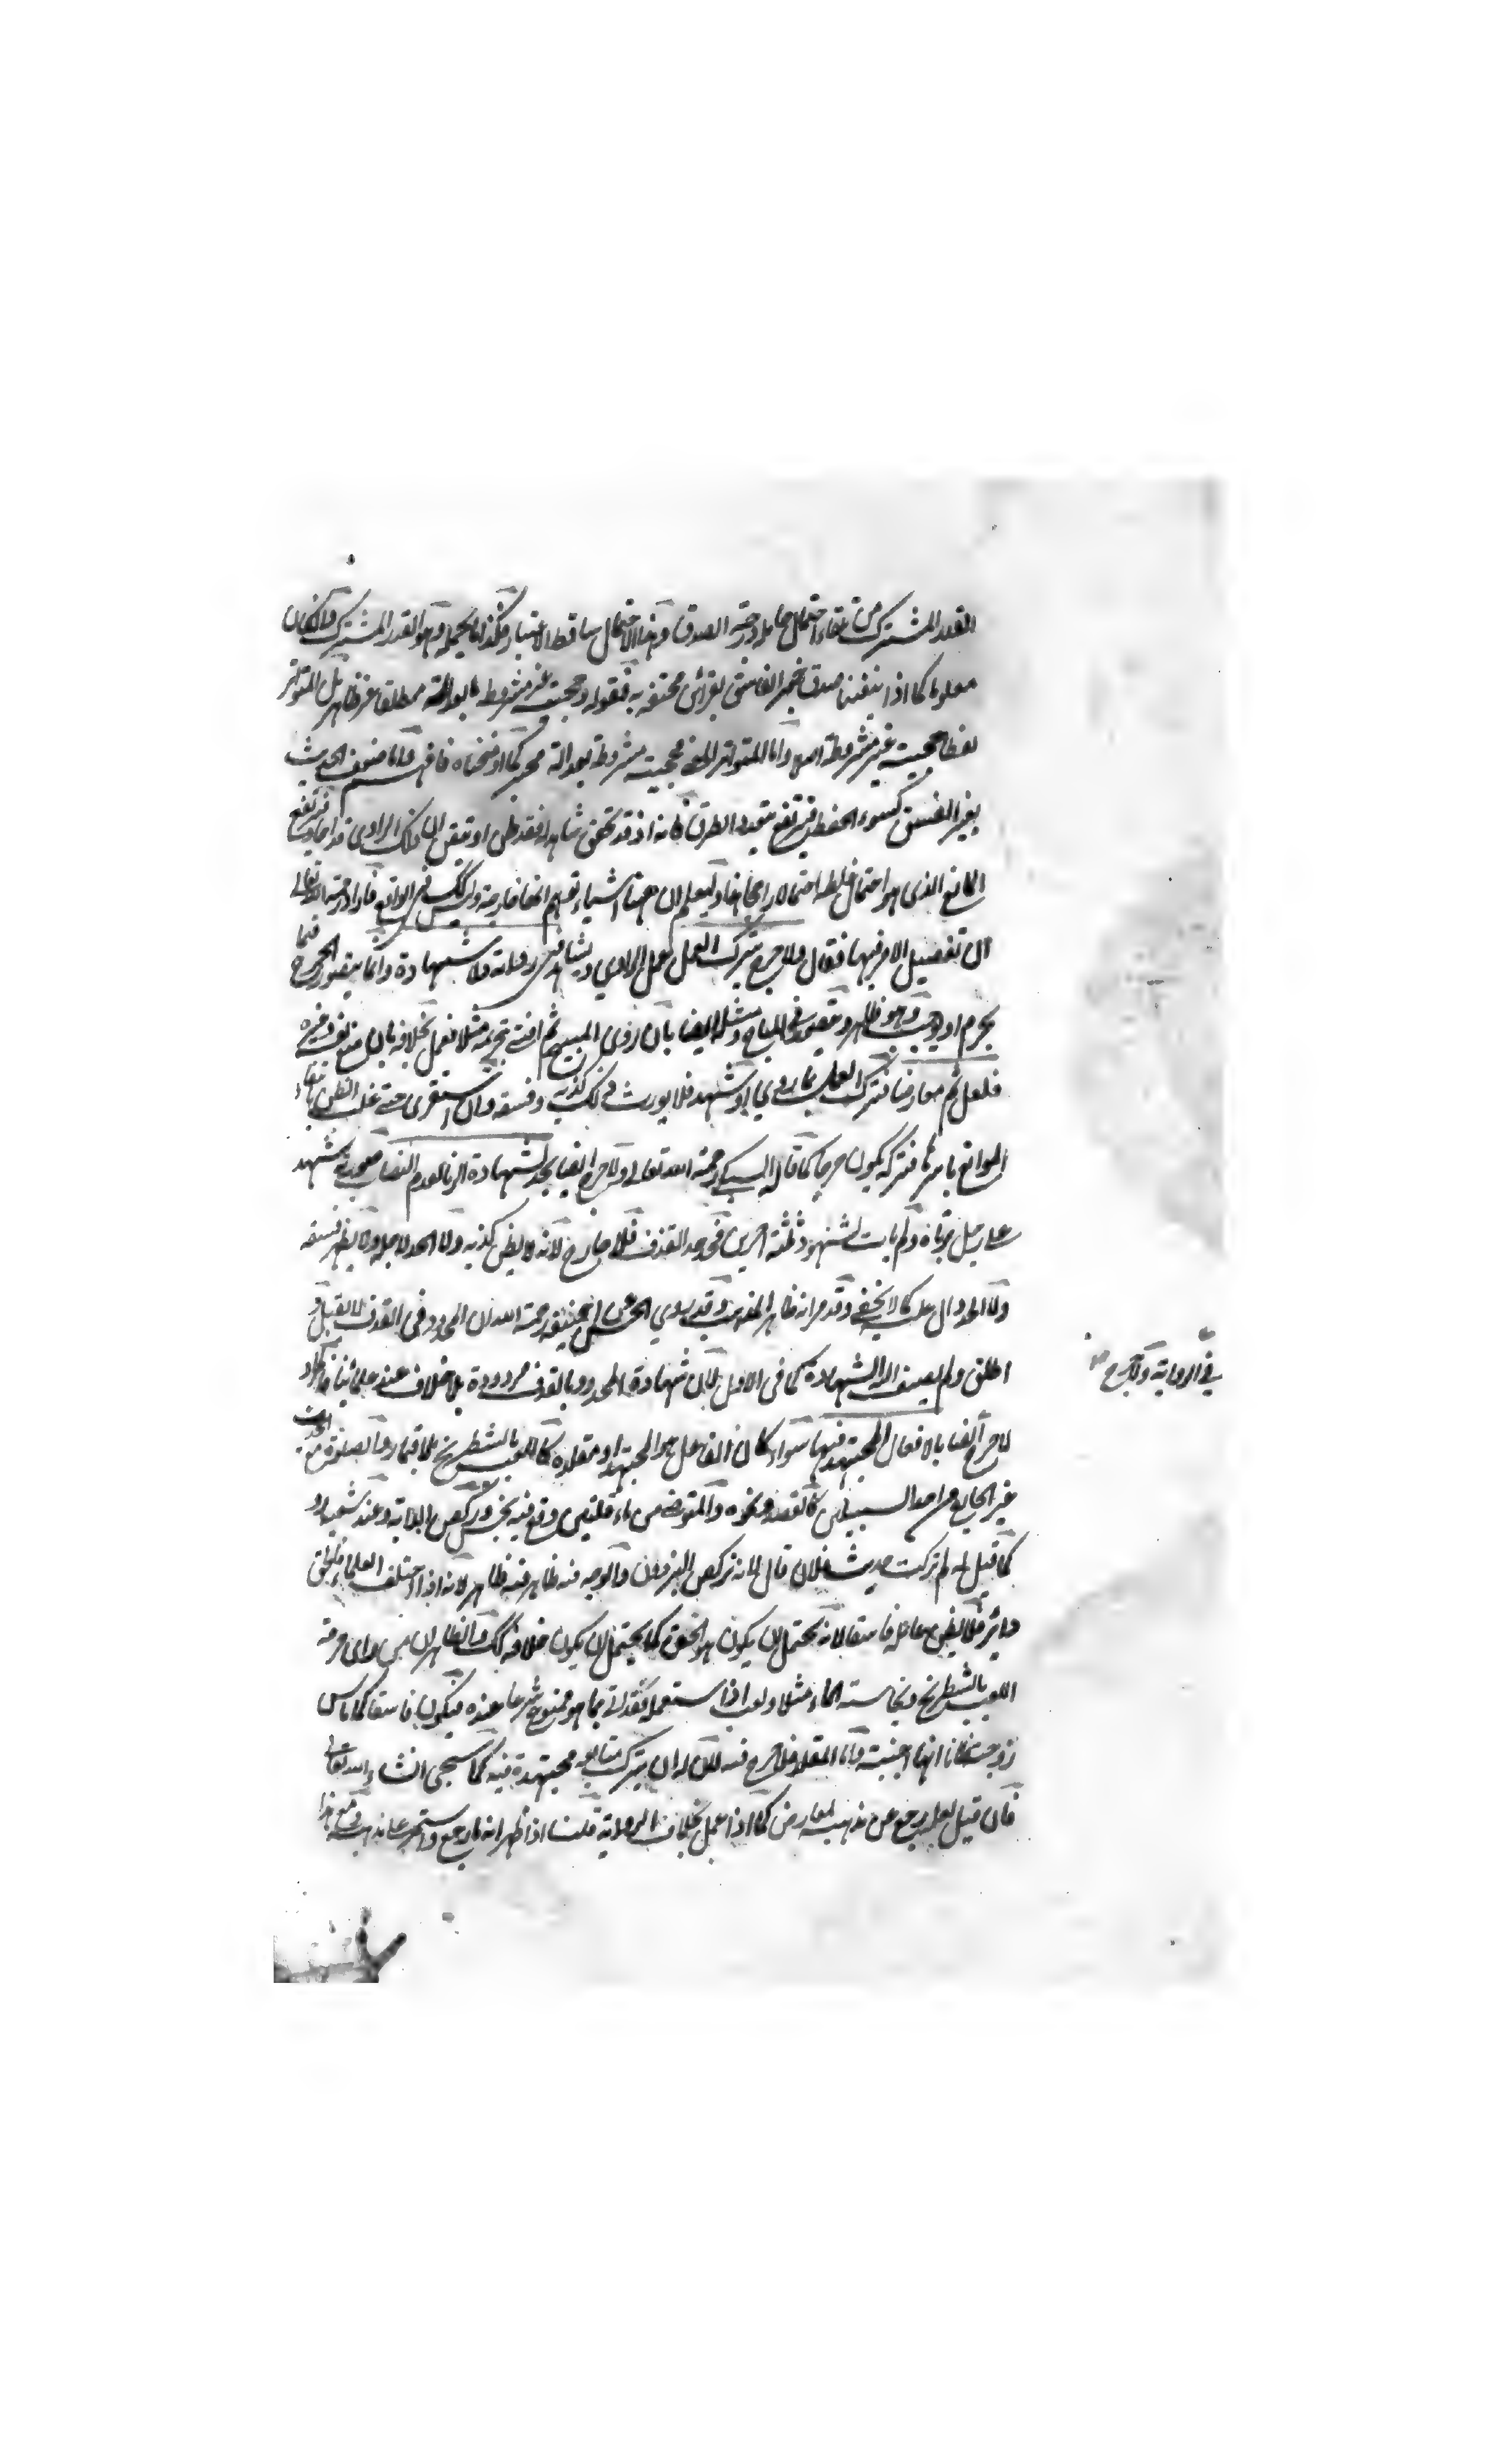 القدر المشترك من تلقاء احتمال حامل درجة الصدق وهذا الاحتمال ساقط الاعتبار فكذا ما يحمله وهو القدر المشترك وان كان
معلوما كما اذا تيقنا صدق خبر الفاسق بقرائن محتفة به فنقوله وحجيته غير مشروط بالعدالة مطلقا غير ظاهر بل المتواتر
لفظا حجيته غير مشروطة اصلا واما المتواتر المعنى فحجيته مشروطة بعدالة مخبر كما اوضحناه فافهم واما ضعف الحديث
بغير الفسق كسوء الحفظ فيرتفع بتعدد الطرق فانه اذ قد تحقق شاهدا فقد ظن او تيقن ان ذلك الراوي قد اجاد فيرتفع
المانع الذي هو احتمال غلطه احتمالا راجحا هذا وليعلم ان ههنا اشياء توهم انها قادحة وليس كذلك في الواقع فاراد رحمه الله تعالى
ان تفصيل الامر فيها فقال ولا جرح بترك العمل عمل الراوي والشاهد في رواية ولا شهادة وانما يتصور الجرح فيما
يحرم او يوجب وهو ظاهر ويتصور في المباح ومثله ايضا بان روى المبيح ثم افتى بتحريمه مثلا فعمل بخلافه بان منع نفسه وغيره
فلعل ثم معارضا فترك العمل بما روى او شهد فلا يورث ذلك كذبه وفسقه وان استقرى حتى غلب الظن بانتفاء
الموانع باسرها فتركه يكون جرحا كما قاله السبكي رحمه الله تعالى ولا جرح ايضا بحد لشهادة الزنا لعدم النصاب بشهد
على رجل بزناه ولم يات بشهود ثلثة اخرين فحد حد القذف فلا جارح لانه لا يظن كذبه ولا الحد لاجله ولا يظهر فسقه
ولا الحد دال عليه كما لا يخفى وقد مر انه ظاهر المذهب وقد روى الحسن عن ابي حنيفة رحمه الله ان المحدود في القذف لا يقبل و
اطلق ولم يضف الى الشهادة كما في الاول لان شهادة المحدود بالقذف مردودة بلا خلاف عند علمائنا
في الرواية ولا جرح صح
لا جرح ايضا بالافعال المجتهد فيها سواء كان الفاعل هو المجتهد او مقلده كاللعب بالشطرنج بلا قمار والصلوة مع الحدث
غير الخارج من احد السبيلين كالفصد ونحوه والتوضي من ماء قلتين وقع فيه نجس وركض الدابة وعند شعبة
كما قيل له لم تركت حديث فلان قال لانه تركض البرذون والوجه فيه ظاهر لانه اذا اختلف العلماء فالحق
دائر فلا يظن عامله فاسقا لانه يحتمل ان يكون هو الحق كما يحتمل ان يكون خلافه كذلك والظاهر ان من راى حرمة
اللعب بالشطرنج ونجاسة الماء مثلا ولعب اذا استعمله فقد اتى بما هو ممنوع شرعا عنده فيكون فاسقا كمن باس
زوجته ظانا انها اجنبية واما المقلد فلا جرح فيه لان له ان يترك متابعة مجتهده فيه كما سيجئ ان شاء الله تعالى
فان قيل لعله رجع عن مذهبه لمعارض كما اذا عمل بخلاف الرواية قلنا اذا ظهر انه ما رجع واستمر على مذهبه ومع هذا